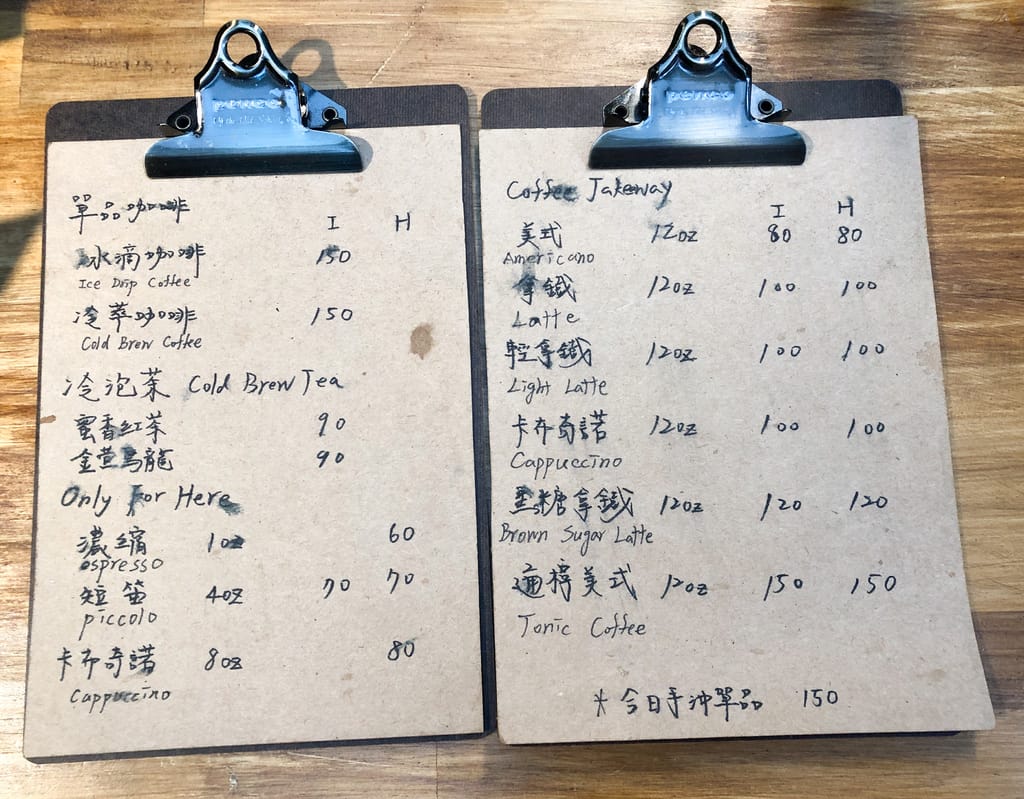 penco
單品咖啡 I H
冰滴咖啡 150
Ice Drip Coffee
冷萃咖啡 150
Cold Brew Coffee
冷泡茶 Cold Brew Tea
蜜香紅茶 90
金萱烏龍 90
Only For Here
濃縮 1oz 60
espresso
短笛 4oz 70 70
piccolo
卡布奇諾 8oz 80
Cappuccino
penco
Coffee Takeway
I H
美式 12oz 80 80
Americano
拿鐵 12oz 100 100
Latte
輕拿鐵 12oz 100 100
Light Latte
卡布奇諾 12oz 100 100
Cappuccino
黑糖拿鐵 12oz 120 120
Brown Sugar Latte
通檸美式 12oz 150 150
Tonic Coffee
* 今日手沖單品 150